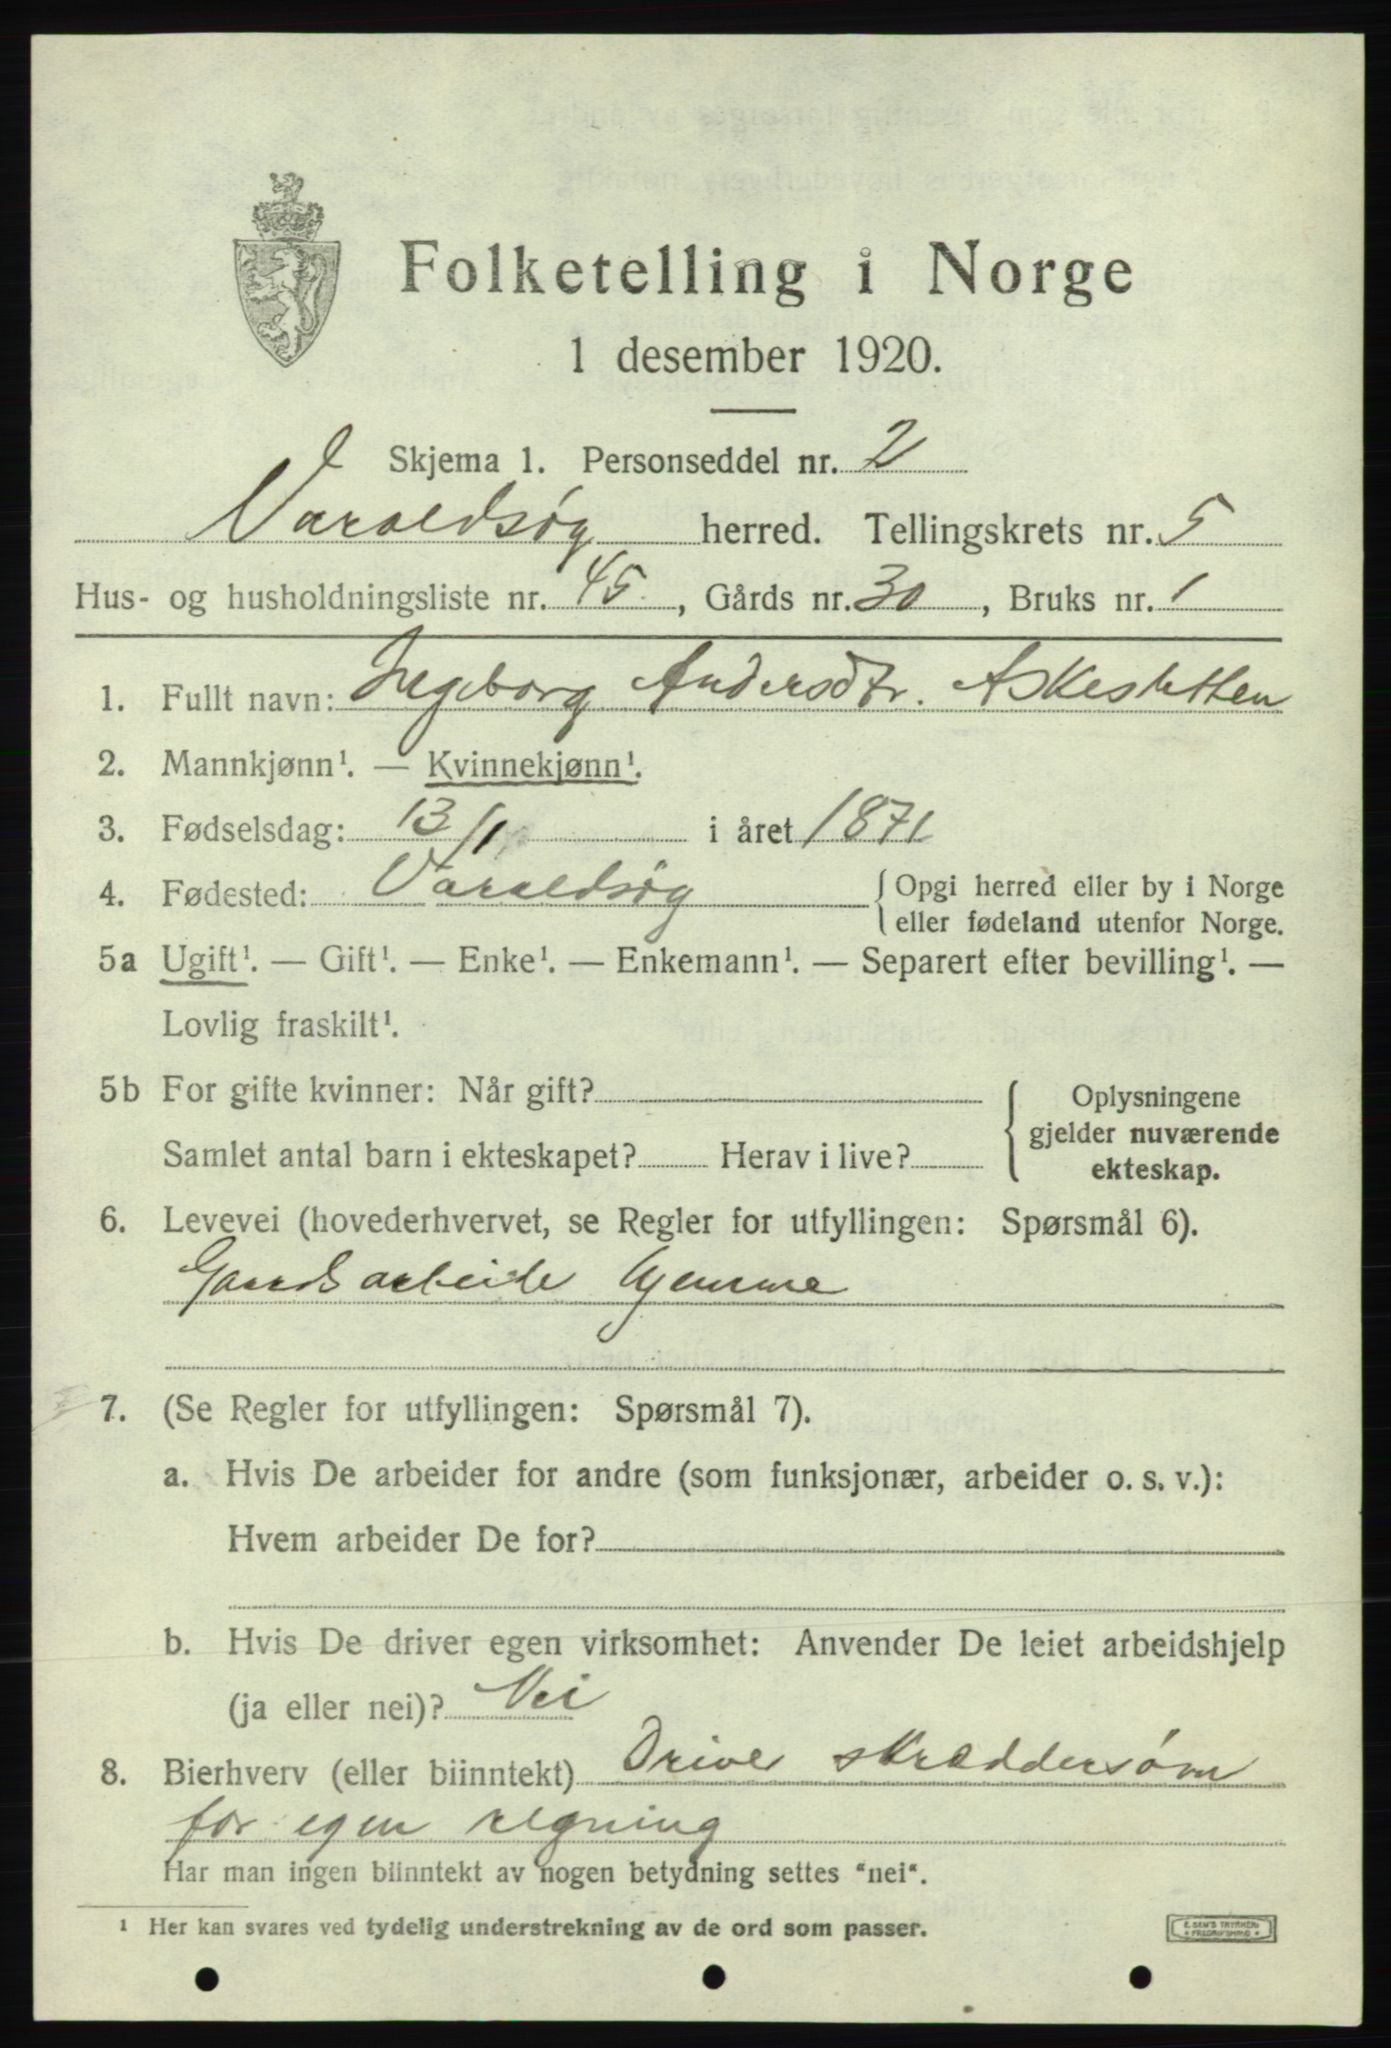 Folketelling i Norge
1 desember 1920.
Skjema 1. Personseddel nr. 2
Varaldsøy herred. Tellingskrets nr. 5
Hus- og husholdningsliste nr. 45, Gårds nr. 30, Bruks nr. 1
1. Fullt navn: Ingeborg Andersdtr. Askesletten
2. Mannkjønn¹. — Kvinnekjønn¹.
3. Fødselsdag: 13/1 i året 1871
4. Fødested: Varaldsøy { Opgi herred eller by i Norge
eller fødeland utenfor Norge.
5a Ugift¹. — Gift¹. — Enke¹. — Enkemann¹. — Separert efter bevilling¹. —
Lovlig fraskilt¹.
5b For gifte kvinner: Når gift?
Samlet antal barn i ekteskapet? Herav i live?
{ Oplysningene
gjelder nuværende
ekteskap.
6. Levevei (hovederhvervet, se Regler for utfyllingen: Spørsmål 6).
Gaardsarbeide hjemme
7. (Se Regler for utfyllingen: Spørsmål 7).
a. Hvis De arbeider for andre (som funksjonær, arbeider o. s. v.):
Hvem arbeider De for?
b. Hvis De driver egen virksomhet: Anvender De leiet arbeidshjelp
(ja eller nei)? Nei
8. Bierhverv (eller biinntekt) Driver skræddersøm
for egen regning
Har man ingen biinntekt av nogen betydning settes "nei".
¹ Her kan svares ved tydelig understrekning av de ord som passer.
E. SEM'S TRYKKERI
FREDRIKSHALD